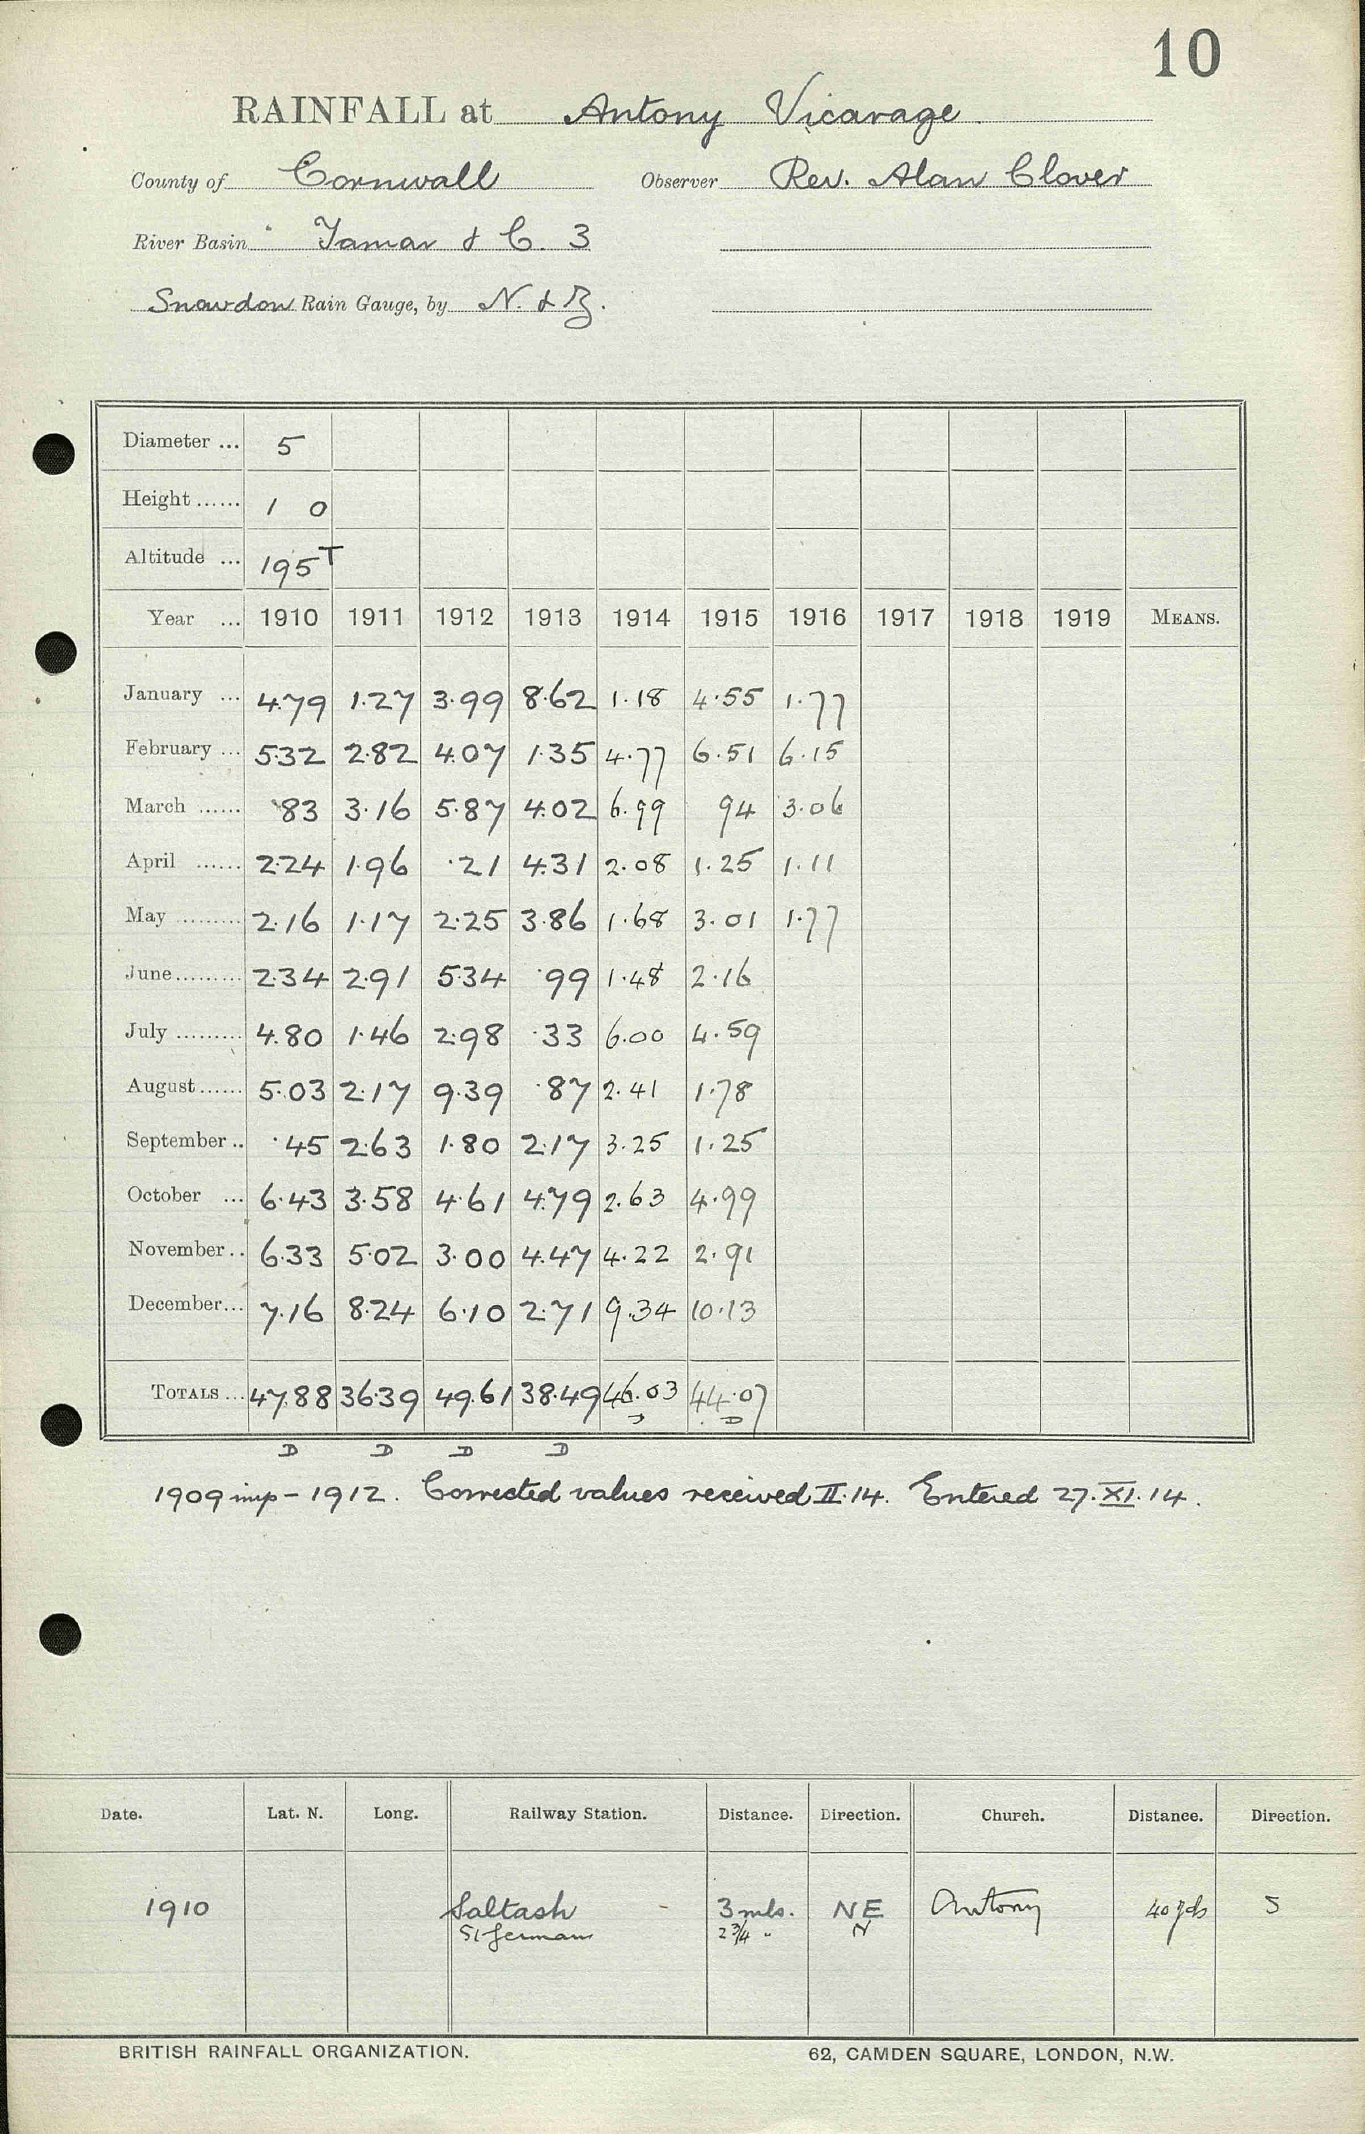 10
RAINFALL at Antony Vicarage.
County of Cornwall Observer Rev. Alan Clover
River Basin Tamar & C. 3
Snowdon Rain Gauge, by N. & Z.
Diameter ... 5
Height ...... 1 0
Altitude ... 195 T
Year ... 1910 1911 1912 1913 1914 1915 1916 1917 1918 1919 MEANS.
January ... 4.79 1.27 3.99 8.62 1.18 4.55 1.77
February ... 5.32 2.82 4.07 1.35 4.77 6.51 6.15
March ...... .83 3.16 5.87 4.02 6.99 94 3.06
April ...... 2.24 1.96 .21 4.31 2.08 1.25 1.11
May ......... 2.16 1.17 2.25 3.86 1.68 3.01 1.77
June ......... 2.34 2.91 5.34 .99 1.48 2.16
July ......... 4.80 1.46 2.98 .33 6.00 4.59
August ...... 5.03 2.17 9.39 .87 2.41 1.78
September .. .45 2.63 1.80 2.17 3.25 1.25
October ... 6.43 3.58 4.61 4.79 2.63 4.99
November .. 6.33 5.02 3.00 4.47 4.22 2.91
December ... 7.16 8.24 6.10 2.71 9.34 10.13
TOTALS ... 47.88 36.39 49.61 38.49 46.03 44.07
D D D D D D
1909 imp - 1912. Corrected values received II.14. Entered 27.XI.14.
Date. Lat. N. Long. Railway Station. Distance. Direction. Church. Distance. Direction.
1910 Saltash 3 mls. NE Antony 40 yds S
St Germans 2 3/4 " N
BRITISH RAINFALL ORGANIZATION. 62, CAMDEN SQUARE, LONDON, N.W.